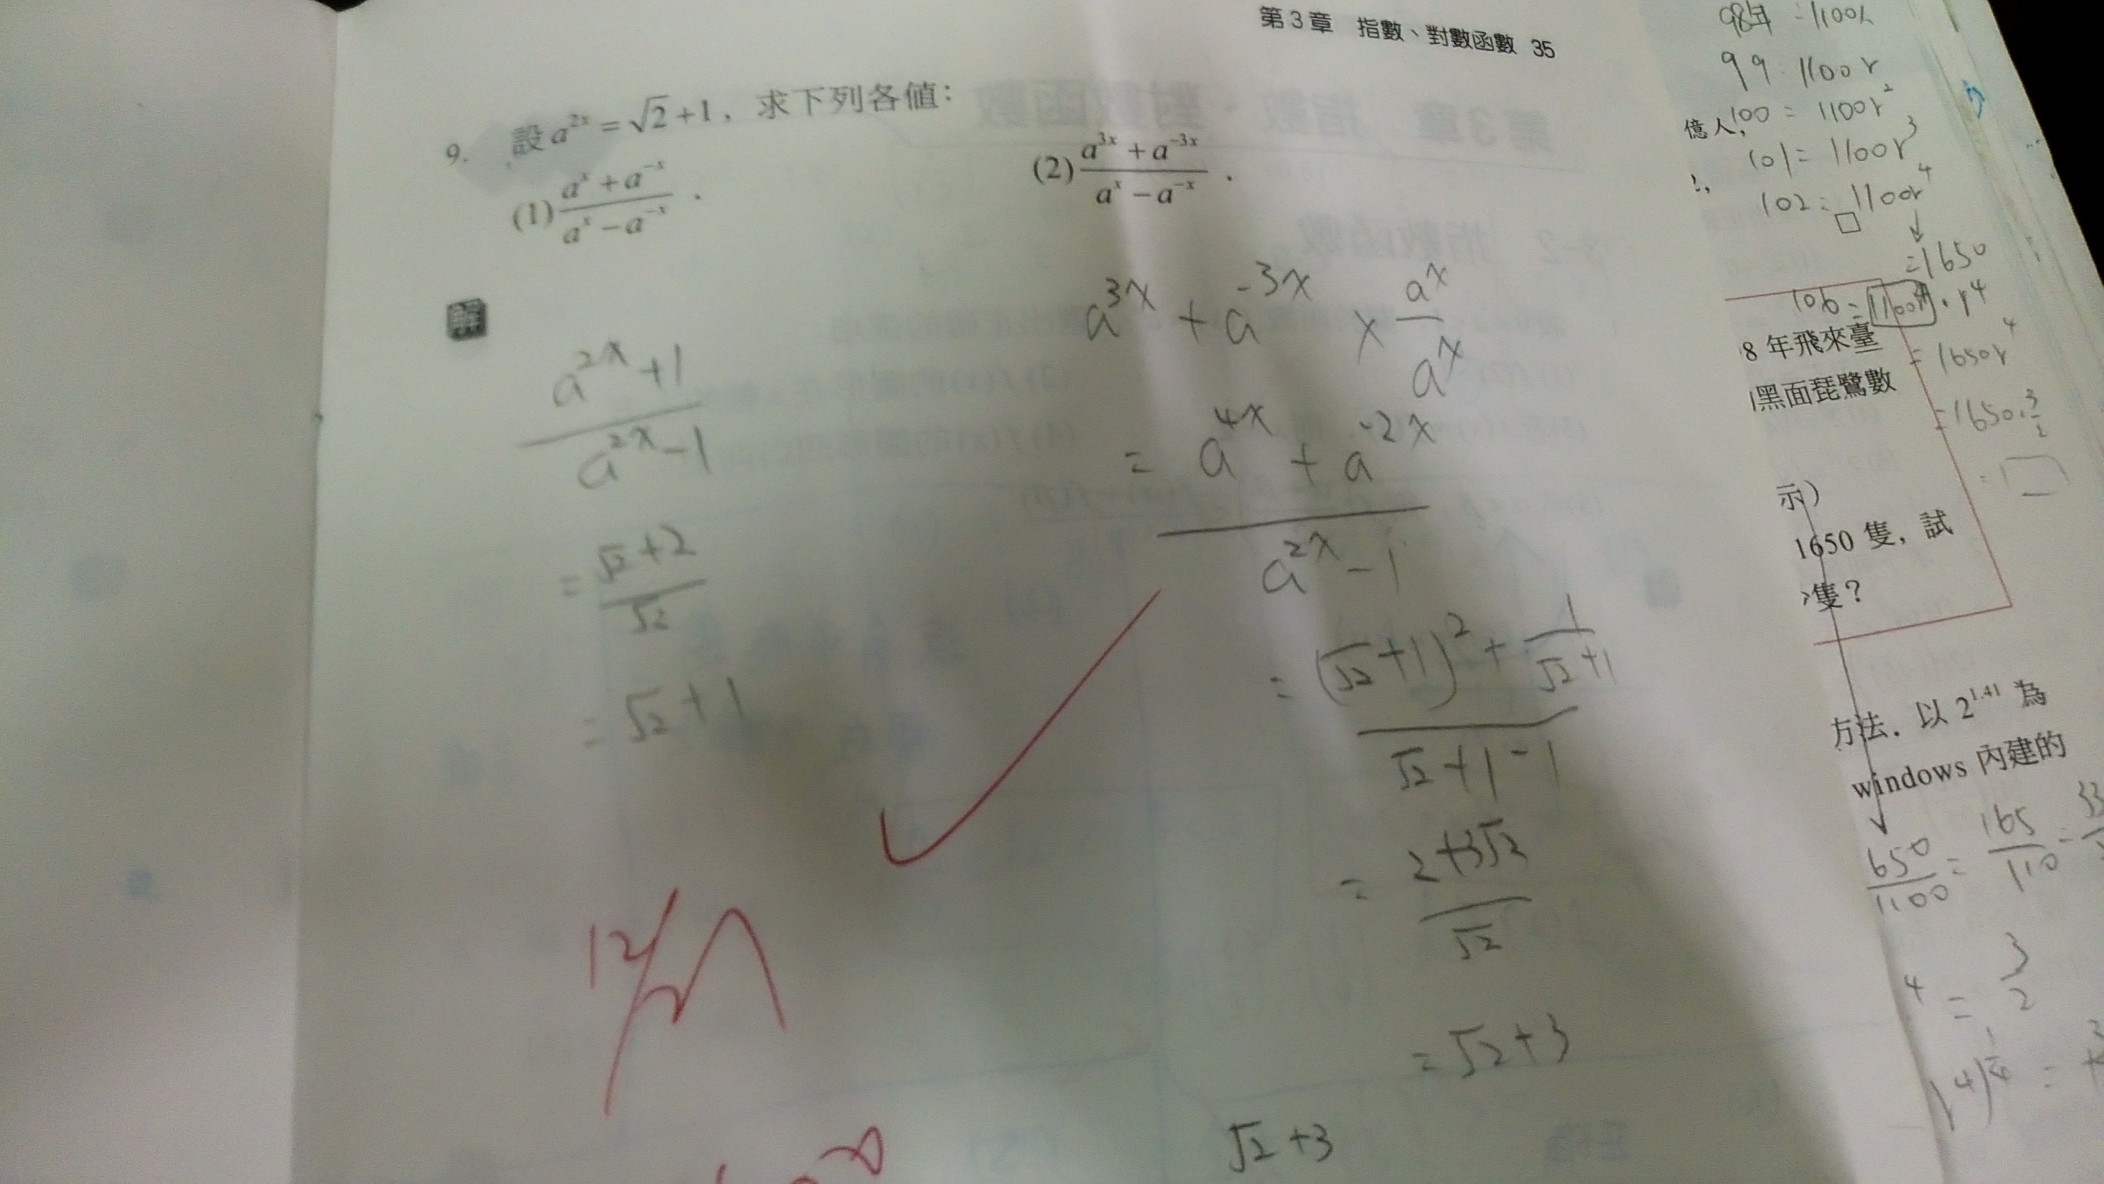 第3章 指數、對數函數 35
9. 設 a^{2x} = √2 + 1，求下列各值：
(1) (a^x + a^{-x})/(a^x - a^{-x})．
(2) (a^{3x} + a^{-3x})/(a^x - a^{-x})．
解
(a^{2x} + 1)/(a^{2x} - 1)
= (√2 + 2)/√2
= √2 + 1
a^{3x} + a^{-3x} × a^x/a^x
= (a^{4x} + a^{-2x})/(a^{2x} - 1)
= ((√2 + 1)^2 + 1/(√2 + 1))/(√2 + 1 - 1)
= (2 + 3√2)/√2
= √2 + 3
√2 + 3
12/
98年 = 1100
99 = 1100r
100 = 1100r^2
億人，
101 = 1100r^3
102 = 1100r^4
= 1650
106 = 1100r^4 · r^4
= 1650r^4
= 1650 · 3/2
= □
8 年飛來臺
黑面琵鷺數
示)
1650 隻，試
隻？
方法．以 2^{1.41} 為
windows 內建的
650/1100 = 165/110 = 33
4 = 3/2